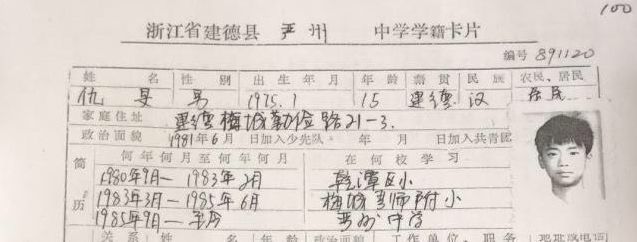 100
浙江省建德县 严州 中学学籍卡片
编号 891120
姓名 性别 出生年月 年龄 籍贯 民族 农民、居民
仇旻 男 1975.1 15 建德 汉 居民
家庭住址 建德梅城勤俭路21-3.
政治面貌 1981年6月 日加入少先队 年 月 日加入共青团
简历 何年何月至何年何月 在何校学习
1980年9月— 1983年2月 乾潭区小
1983年3月— 1985年6月 梅城 师附小
1985年9月— 严州中学
关系 姓名 年龄 政治面貌 工作单位、职务